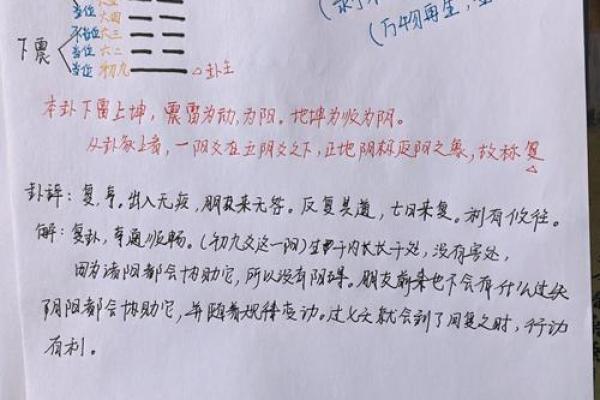 当位 六四
不当位 六三
当位 六二
下震
当位 初九 △卦主
(万物再生,
本卦下雷上坤，震雷为动，为阳。地坤为顺为阴。
从卦象上看，一阳爻在五阴爻之下，正地阴极返阳之象，故称复
卦辞：复，亨。出入无疾，朋友来无咎。反复其道，七日来复。利有攸往。
解：复卦，亨通顺畅。(初九爻这一阳)生于内长长于处，没有害处，
因为诸阳都会协助它，所以没有阴碍。朋友前来也不会有什么过失
阴阳都会协助它，并随着规律变动。过七天就会到了回复之时，行动
有利。